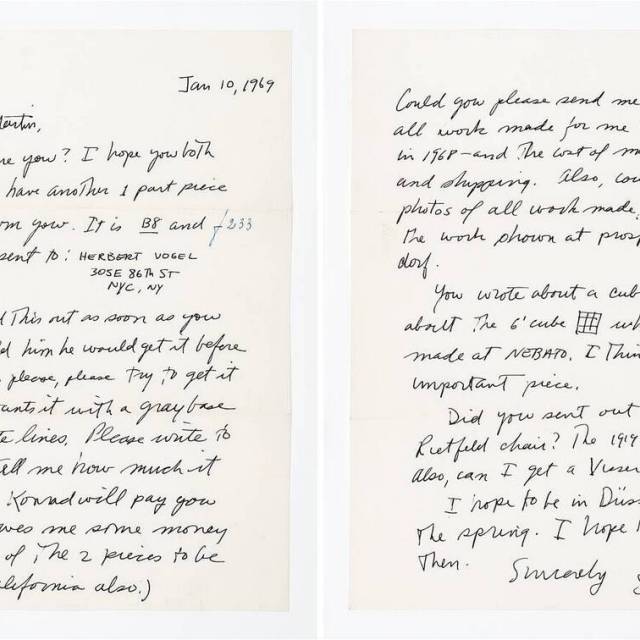 Jan 10, 1969
Martin,
you? I hope you both
have another 1 part piece
from you. It is B8 and f 233
sent to: HERBERT VOGEL
305E 86TH ST
NYC, NY
This out as soon as you
him he would get it before
please, please try to get it
wants it with a gray base
lines. Please write to
tell me how much it
Konrad will pay you
owes me some money
of the 2 pieces to be
California also.)
Could you please send me
all work made for me
in 1968 - and the cost of
and shipping. Also,
photos of all work made,
The work shown at
dorf.
You wrote about a
about the 6' cube
made at NEBATO. I
important piece.
Did you sent out
Rietfeld chair? The
also, can I get a
I hope to be in
The spring. I hope
Then.
Sincerely